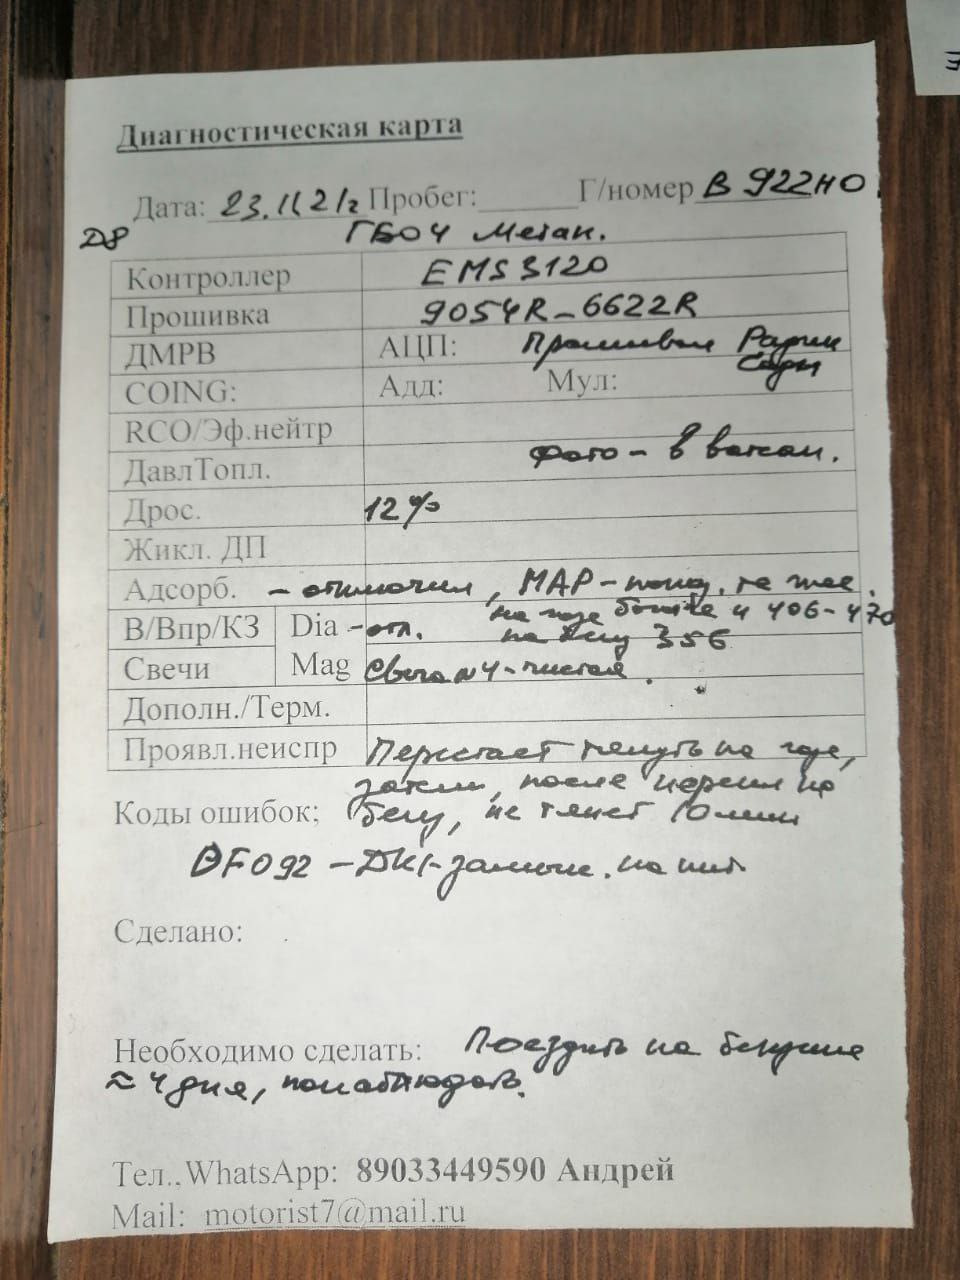 Диагностическая карта
Дата: 23.11 21г Пробег: Г/номер В 922 НО
ГБО4 Метан.
Контроллер EMS 3120
Прошивка 9054R_6622R
ДМРВ АЦП: Прошивал Рарин
COING: Адд: Мул:
RCO/Эф.нейтр
ДавлТопл. фото - в ватсап.
Дрос. 12 %
Жикл. ДП
Адсорб. - отключил, МАР -
на газе больше 406-470
В/Впр/КЗ Dia - отл. на бензу 356
Свечи Mag Свеча №4 - чистая.
Дополн./Терм.
Проявл.неиспр Перестает тянуть на газе,
затем, после перекл на
Коды ошибок; бенз, не тянет 10 мин
DF092 - ДК1 - замык. на пит
Сделано:
Необходимо сделать: Поездить на бензине
≈ 4 дня, понаблюдать.
Тел., WhatsApp: 89033449590 Андрей
Mail: motorist7@mail.ru